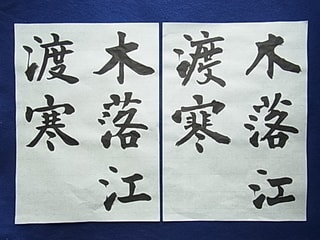 木落江
渡寒
木落江
渡寒